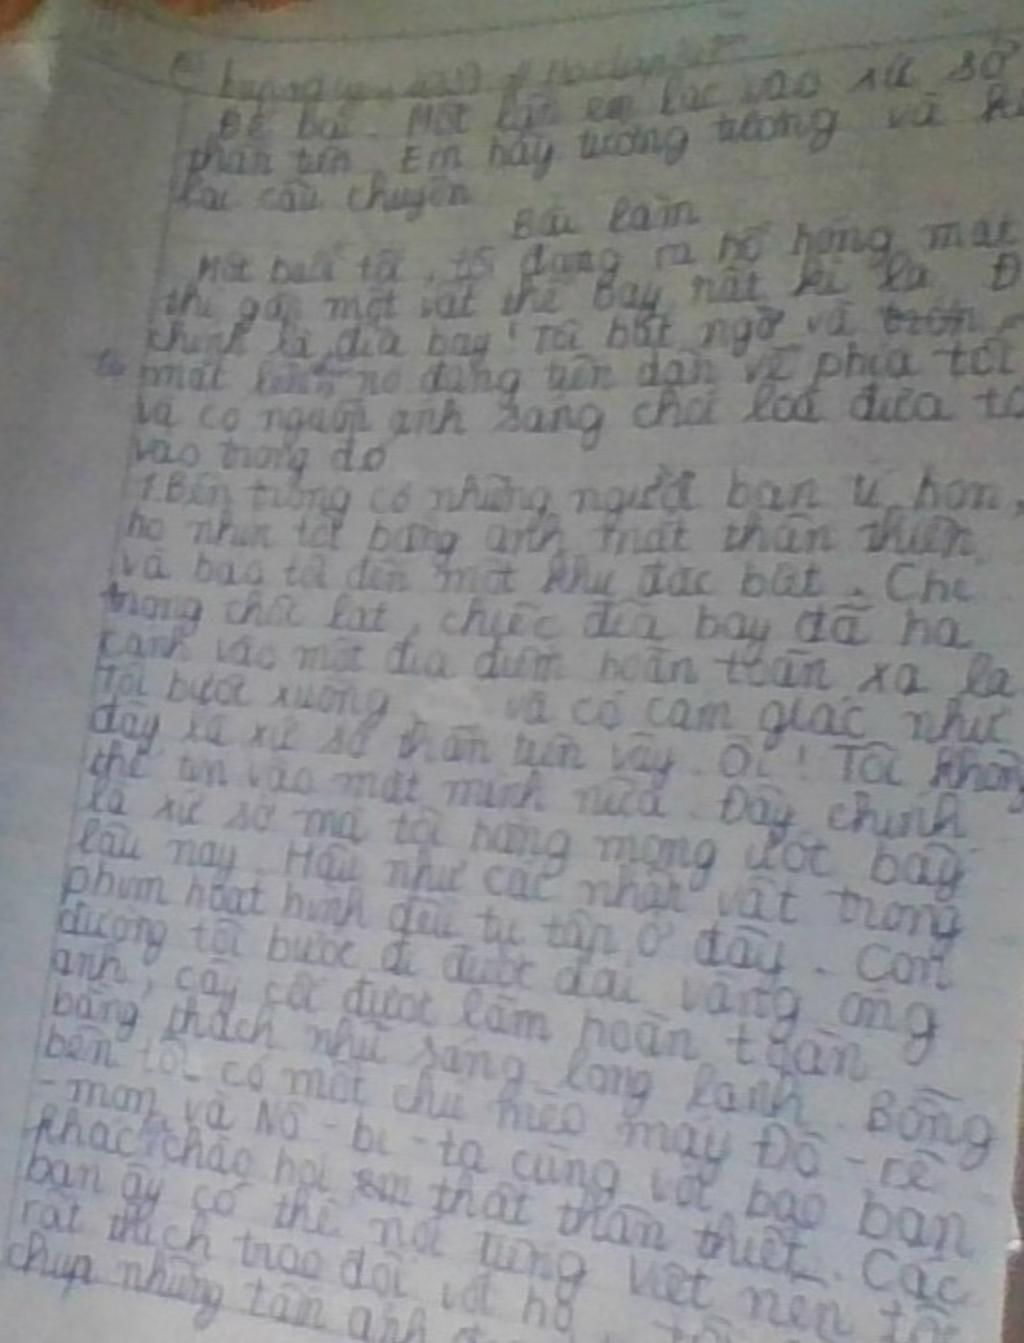 Đề bài. Một lần em lạc vào xứ sở
thần tiên. Em hãy tưởng tượng và kể
lại câu chuyện
Bài làm
Một buổi tối, tôi đang ra hè hóng mát
thì gặp một vật thể bay rất kì lạ. Đ
chính là đĩa bay! Tôi bất ngờ và tròn
mắt nó đang tiến dần về phía tôi
và có nguồn ánh sáng chói loá đưa tô
vào trong đó
Bên trong có những người bạn tí hon,
họ nhìn tôi bằng ánh mắt thân thiện
và bảo tôi đến một khu đặc biệt. Chỉ
trong chốc lát, chiếc đĩa bay đã hạ
cánh vào một địa điểm hoàn toàn xa lạ
Tôi bước xuống và có cảm giác như
đây là xứ sở thần tiên vậy. Ôi! Tôi không
thể tin vào mắt mình nữa. Đây chính
là xứ sở mà tôi hằng mong ước bấy
lâu nay. Hầu như các nhân vật trong
phim hoạt hình đều tụ tập ở đây. Con
đường tôi bước đi được dải vàng óng
ánh, cây cối được làm hoàn toàn
bằng thạch như sáng long lanh. Bỗng
bên tôi có một chú mèo máy Đô-rê
-mon và Nô-bi-ta cùng với bao bạn
khác chào hỏi em thật thân thiết. Các
bạn ấy có thể nói tiếng việt nên tôi
rất thích trao đổi với họ
chụp những tấm ảnh